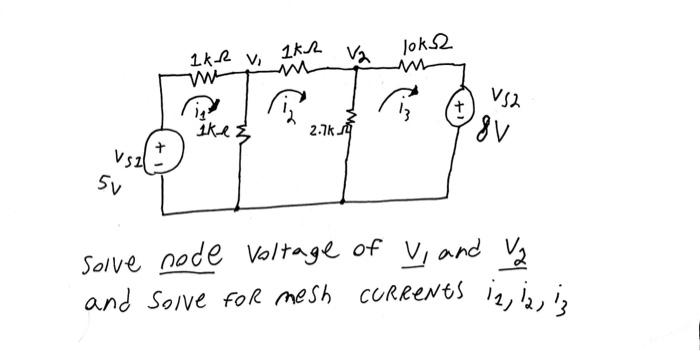 1kΩ V1 1kΩ V2 10kΩ
i1 i2 i3
1kΩ 2.7kΩ
+ -
VS2
8V
+ -
VS1
5V
Solve node Voltage of V1 and V2
and Solve FOR mesh CURRENtS i1, i2, i3